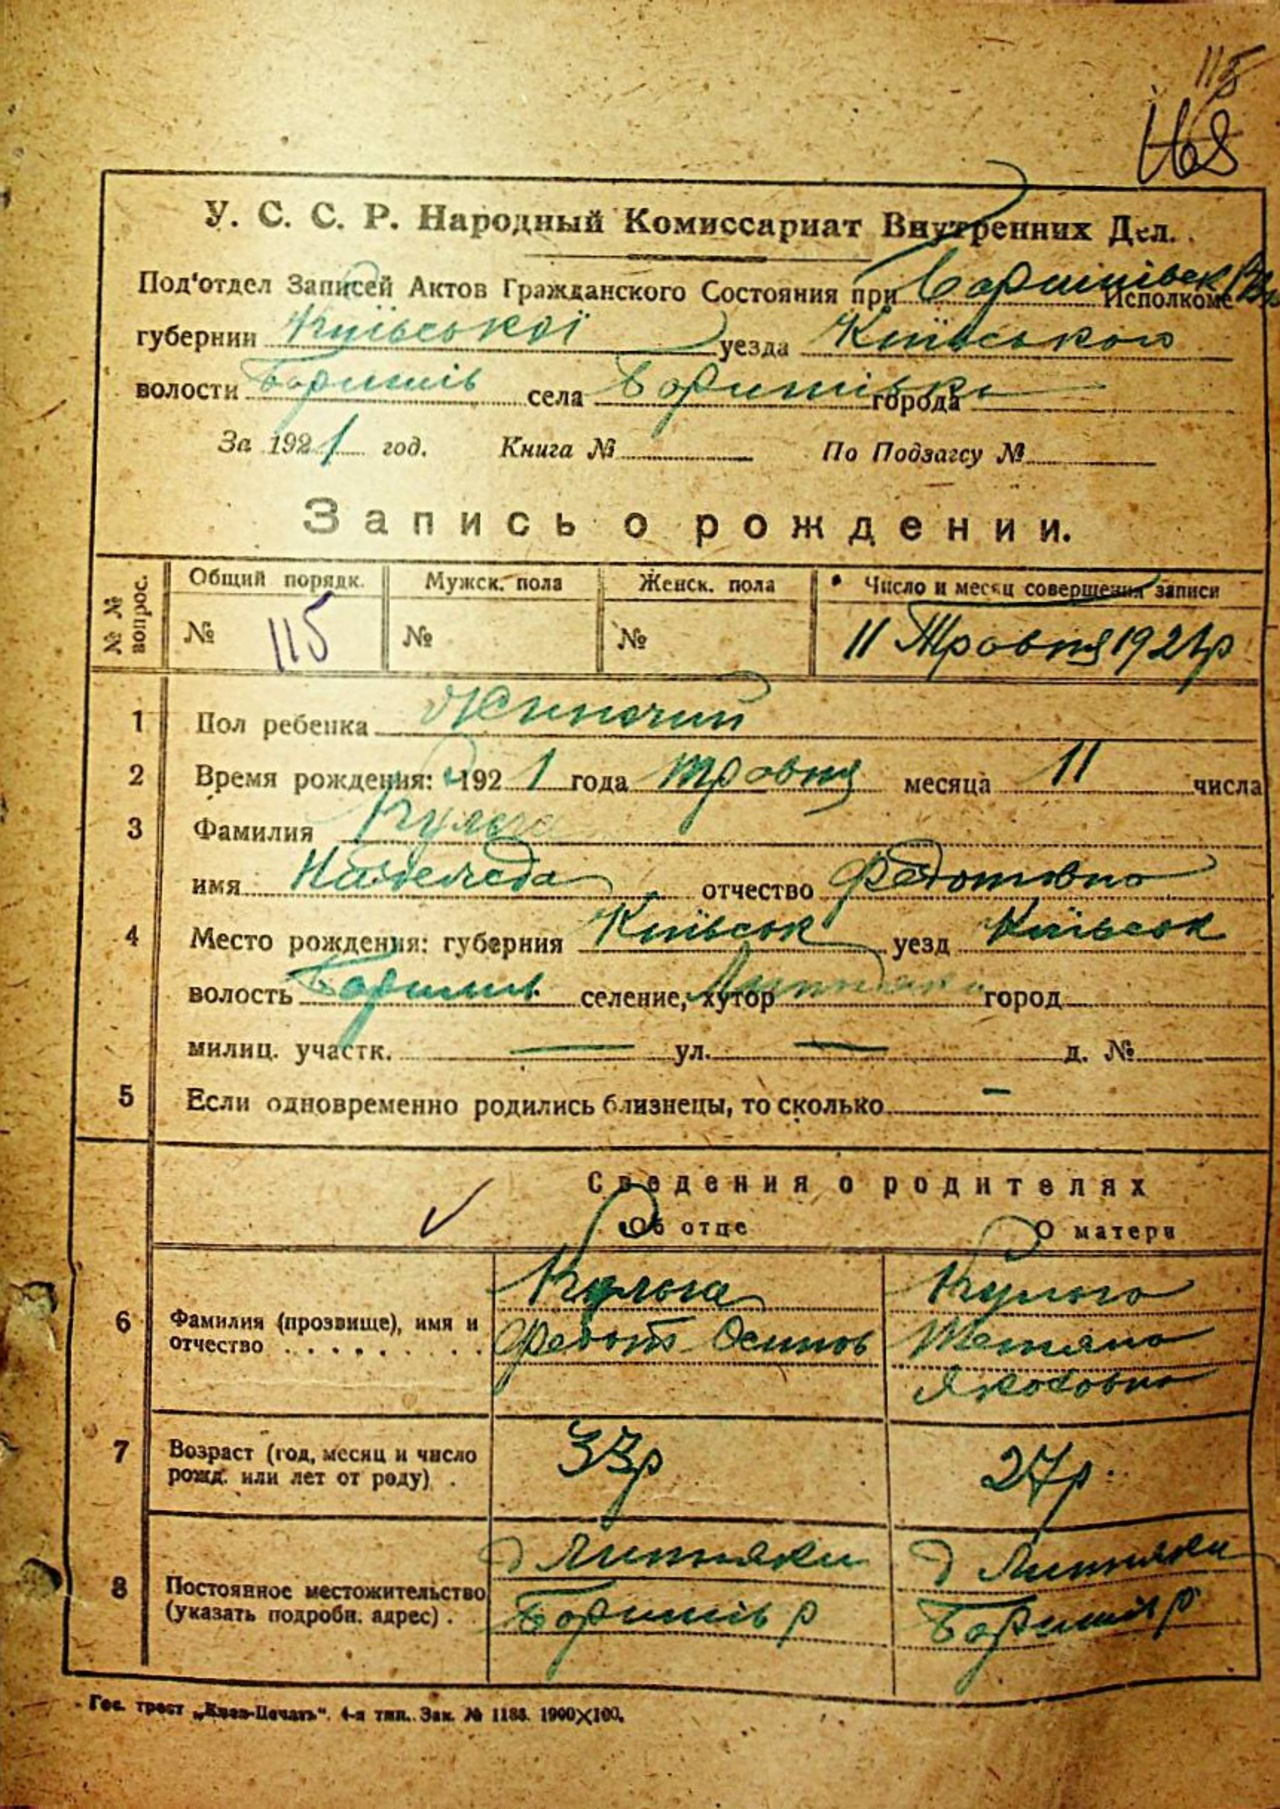 115
168
У. С. С. Р. Народный Комиссариат Внутренних Дел.
Под‘отдел Записей Актов Гражданского Состояния при Исполкоме
губернии Київської уезда Київського
волости Боришпіль села города
За 1921 год. Книга № По Подзагсу №
Запись о рождении.
№ № вопрос. Общий порядк. Мужск. пола Женск. пола Число и месяц совершения записи
№ 115 № № 11 Травня 1921 р
1 Пол ребенка Жиночий
2 Время рождения: 1921 года травня месяца 11 числа
3 Фамилия Кульга
имя Надежда отчество Федотовна
4 Место рождения: губерния Київськ уезд Київськ
волость селение, хутор город
милиц. участк. — ул. — д. №
5 Если одновременно родились близнецы, то сколько –
Сведения о родителях
Об отце О матери
6 Фамилия (прозвище), имя и отчество . . . . . . . . . .
Кульга
Федот Осипов
Кульга
Тетяна
Якововна
7 Возраст (год, месяц и число рожд. или лет от роду) .
33р
27р.
8 Постоянное местожительство (указать подробн. адрес) .
Гос. трест „Киев-Печать“. 4-я тип. Зак. № 1188. 1900×100.